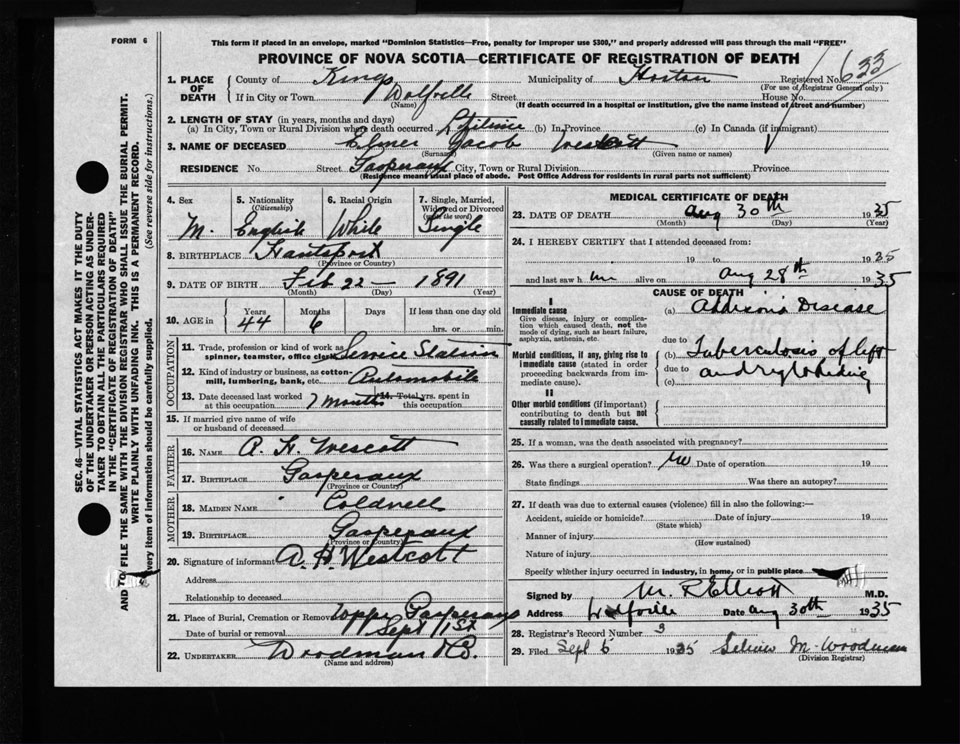 FORM 6
This form if placed in an envelope, marked "Dominion Statistics—Free, penalty for improper use $300," and properly addressed will pass through the mail "FREE"
PROVINCE OF NOVA SCOTIA—CERTIFICATE OF REGISTRATION OF DEATH
1. PLACE OF DEATH
County of Kings Municipality of Horton Registered No. 633
(For use of Registrar General only)
If in City or Town Wolfville Street House No.
(Name) (If death occurred in a hospital or institution, give the name instead of street and number)
2. LENGTH OF STAY (in years, months and days)
(a) In City, Town or Rural Division where death occurred Lifetime (b) In Province (c) In Canada (if immigrant)
3. NAME OF DECEASED Elmer Jacob Westcott
(Surname) (Given name or names)
RESIDENCE No. Street Gaspereaux City, Town or Rural Division Province
(Residence means usual place of abode. Post Office Address for residents in rural parts not sufficient)
4. Sex M.
5. Nationality (Citizenship) English
6. Racial Origin White
7. Single, Married, Widowed or Divorced (write the word) Single
8. BIRTHPLACE Hantsport
(Province or Country)
9. DATE OF BIRTH Feb 22 — 1891
(Month) (Day) (Year)
10. AGE in Years Months Days If less than one day old
44 6 hrs. or min.
OCCUPATION
11. Trade, profession or kind of work as spinner, teamster, office Service Station
12. Kind of industry or business, as cotton-mill, lumbering, bank, etc. Automobile
13. Date deceased last worked at this occupation 7 months 14. Total yrs. spent in this occupation
15. If married give name of wife or husband of deceased
FATHER
16. NAME A. H. Wescott
17. BIRTHPLACE Gaspereaux
(Province or Country)
MOTHER
18. MAIDEN NAME Coldwell
19. BIRTHPLACE Gaspereaux
(Province or Country)
20. Signature of informant A. H. Westcott
Address
Relationship to deceased
21. Place of Burial, Cremation or Removal Upper Gaspereaux
Date of burial or removal Sept 1st
22. UNDERTAKER Woodman & Co.
(Name and address)
MEDICAL CERTIFICATE OF DEATH
23. DATE OF DEATH Aug 30th 1935
(Month) (Day) (Year)
24. I HEREBY CERTIFY that I attended deceased from:
19 to 1935
and last saw him alive on Aug 28th 1935
CAUSE OF DEATH
I
Immediate cause
Give disease, injury or complication which caused death, not the mode of dying, such as heart failure, asphyxia, asthenia, etc.
(a) Addisons Disease
due to
Morbid conditions, if any, giving rise to immediate cause (stated in order proceeding backwards from immediate cause).
(b) Tuberculosis of left
due to and right kidney
(c)
II
Other morbid conditions (if important) contributing to death but not causally related to immediate cause
25. If a woman, was the death associated with pregnancy?
26. Was there a surgical operation? no Date of operation 19
State findings Was there an autopsy?
27. If death was due to external causes (violence) fill in also the following:—
Accident, suicide or homicide? Date of injury 19
(State which)
Manner of injury
(How sustained)
Nature of injury
Specify whether injury occurred in industry, in home, or in public place
Signed by M. R. Elliott M.D.
Address Wolfville Date Aug 30th 1935
28. Registrar's Record Number 3
29. Filed Sept 6 1935 M. Woodman
(Division Registrar)
SEC. 46—VITAL STATISTICS ACT MAKES IT THE DUTY
OF THE UNDERTAKER OR PERSON ACTING AS UNDER-
TAKER TO OBTAIN ALL THE PARTICULARS REQUIRED
IN THE "CERTIFICATE OF REGISTRATION OF DEATH"
AND TO FILE THE SAME WITH THE DIVISION REGISTRAR WHO SHALL ISSUE THE BURIAL PERMIT.
WRITE PLAINLY WITH UNFADING INK. THIS IS A PERMANENT RECORD.
very item of information should be carefully supplied. (See reverse side for instructions.)